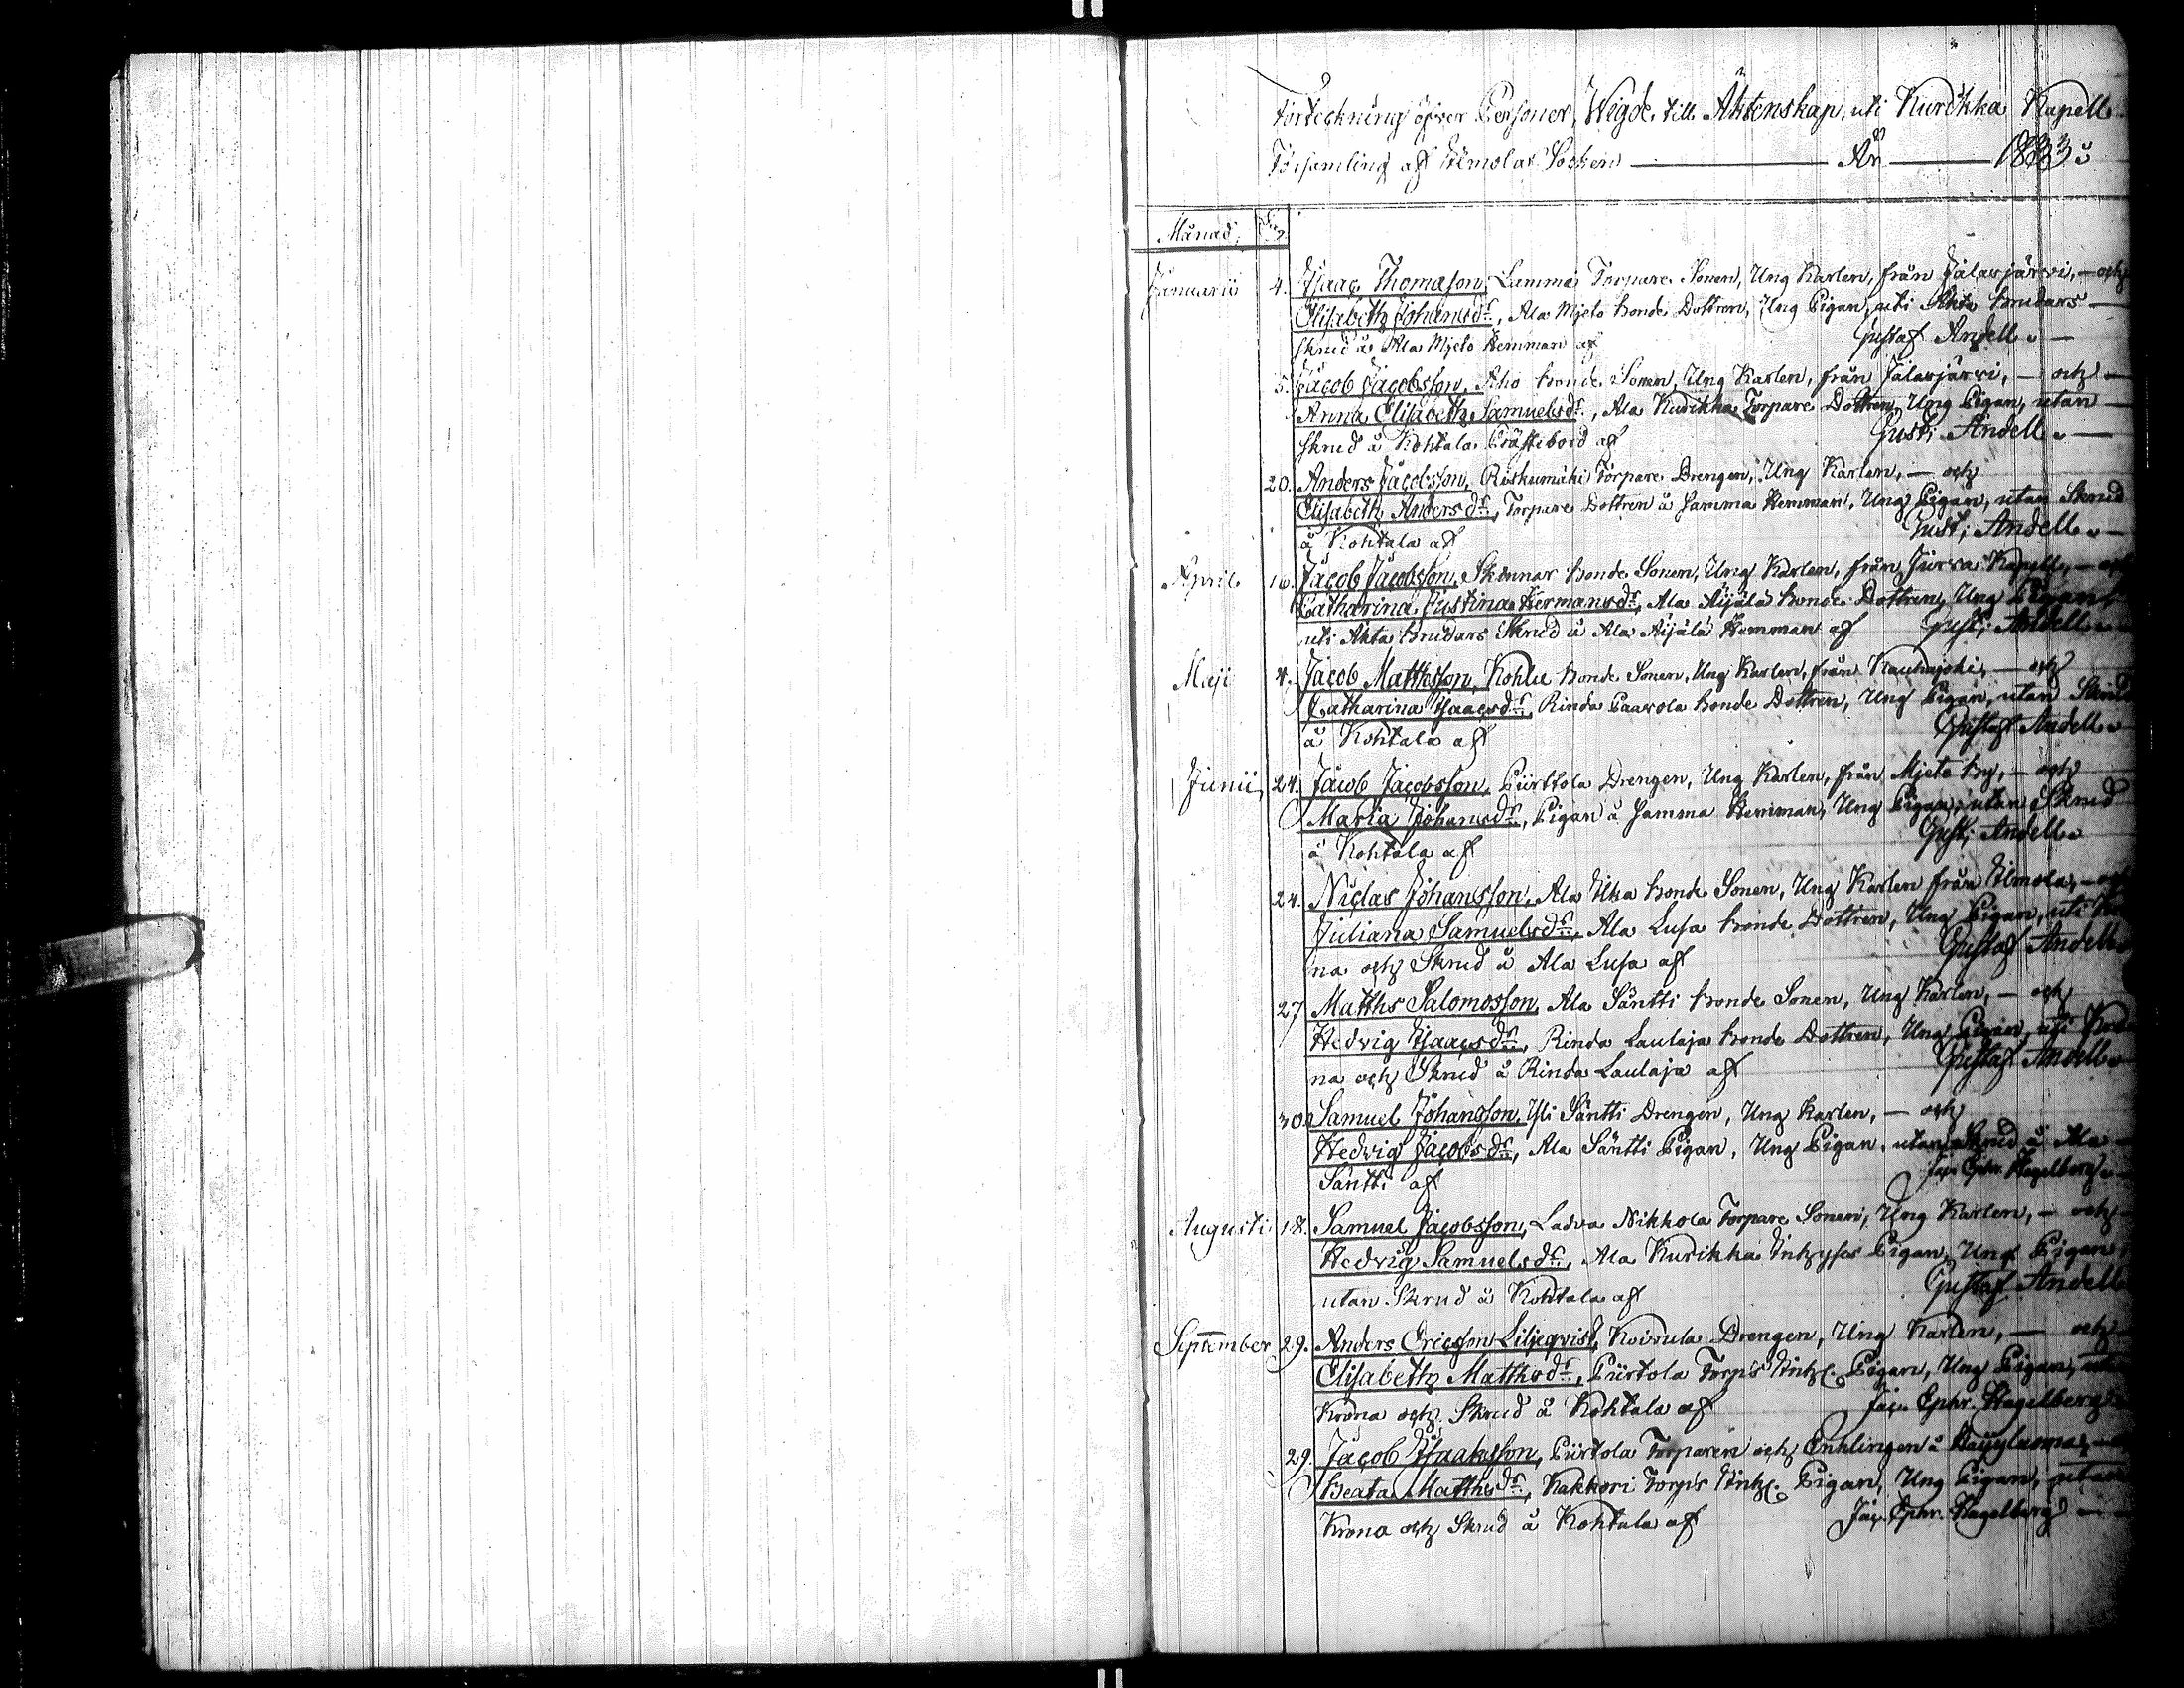 Förteckning öfver Personer, Wigde till Äktenskap, uti Kurikka Kapell
Församling af Ilmola Socken — År — 1833.
Månad, Dag
Januarii 4. Isaac Thomasson, Lammi Torpare Sonen, Ung Karlen, från Jalasjärvi, — och
Elisabeth Johansdr, Ala Mjeto Bonde Dottren, Ung Pigan, uti Äkta Brudars —
skrud å Ala Mjeto Hemman af Gustaf Andell. —
5. Jacob Jacobsson, Aho Bonde Sonen, Ung Karlen, från Jalasjärvi, — och —
Anna Elisabeth Samuelsdr, Ala Kurikka Torpare Dottren, Ung Pigan, utan —
skrud å Kohtala Prästebord af Gust: Andell. —
20. Anders Jacobsson, Riskumäki Torpare Drengen, Ung Karlen, — och
Elisabeth Andersdr, Torpare Dottren å Samma Hemman, Ung Pigan, utan Skrud
å Kohtala af Gust: Andell. —
April 16. Jacob Jacobsson, Skinnar Bonde Sonen, Ung Karlen, från Jurva Kapell, — och
Catharina Justina Hermansdr, Ala Äijälä Bonde Dottren, Ung Pigan
uti Äkta Brudars Skrud å Ala Äijälä Hemman af Gust: Andell.
Maji 4. Jacob Matthsson, Kohlu Bonde Sonen, Ung Karlen, från Kauhajoki, — och
Catharina Isaacsdr, Rinda Paavola Bonde Dottren, Ung Pigan, utan Skrud
å Kohtala af Gustaf Andell.
Junii, 24. Jacob Jacobsson, Piirttola Drengen, Ung Karlen, från Mjeto By, — och
Maria Johansdr, Pigan å Samma Hemman, Ung Pigan, utan Skrud
å Kohtala af Gust: Andell.
24. Niclas Johansson, Ala Ilka Bonde Sonen, Ung Karlen från Ilmola, — och
Juliana Samuelsdr, Ala Lusa Bonde Dottren, Ung Pigan, uti Kro
na och Skrud å Ala Lusa af Gustaf Andell
27 Matths Salomosson, Ala Säntti Bonde Sonen, Ung Karlen, — och
Hedvig Isaacsdr, Rinda Laulaja Bonde Dottren, Ung Pigan, uti Kro
na och Skrud å Rinda Laulaja af Gustaf Andell.
30. Samuel Johansson, Yli Säntti Drengen, Ung Karlen, — och
Hedvig Jacobsdr, Ala Säntti Pigan, Ung Pigan, utan Skrud å Ala —
Säntti af Jac. Ephr. Hagelberg.
Augusti 18. Samuel Jacobsson, Ladva Nikkola Torpare Sonen, Ung Karlen, — och —
Hedvig Samuelsdr, Ala Kurikka Inhyses Pigan, Ung Pigan
utan Skrud å Kohtala af Gustaf Andell
September 29. Anders Ericsson Liljeqvist, Koivula Drengen, Ung Karlen, — och
Elisabeth Matthsdr, Piirtola Torps Inh: Pigan, Ung Pigan, utan
Krona och Skrud å Kohtala af Jac. Ephr. Hagelberg
29. Jacob Isaaksson, Piirtola Torparen och Enklingen å
Beata Matthsdr, Kakkori Torps Inh: Pigan, Ung Pigan, utan
Krona och Skrud å Kohtala af Jac. Ephr. Hagelberg —